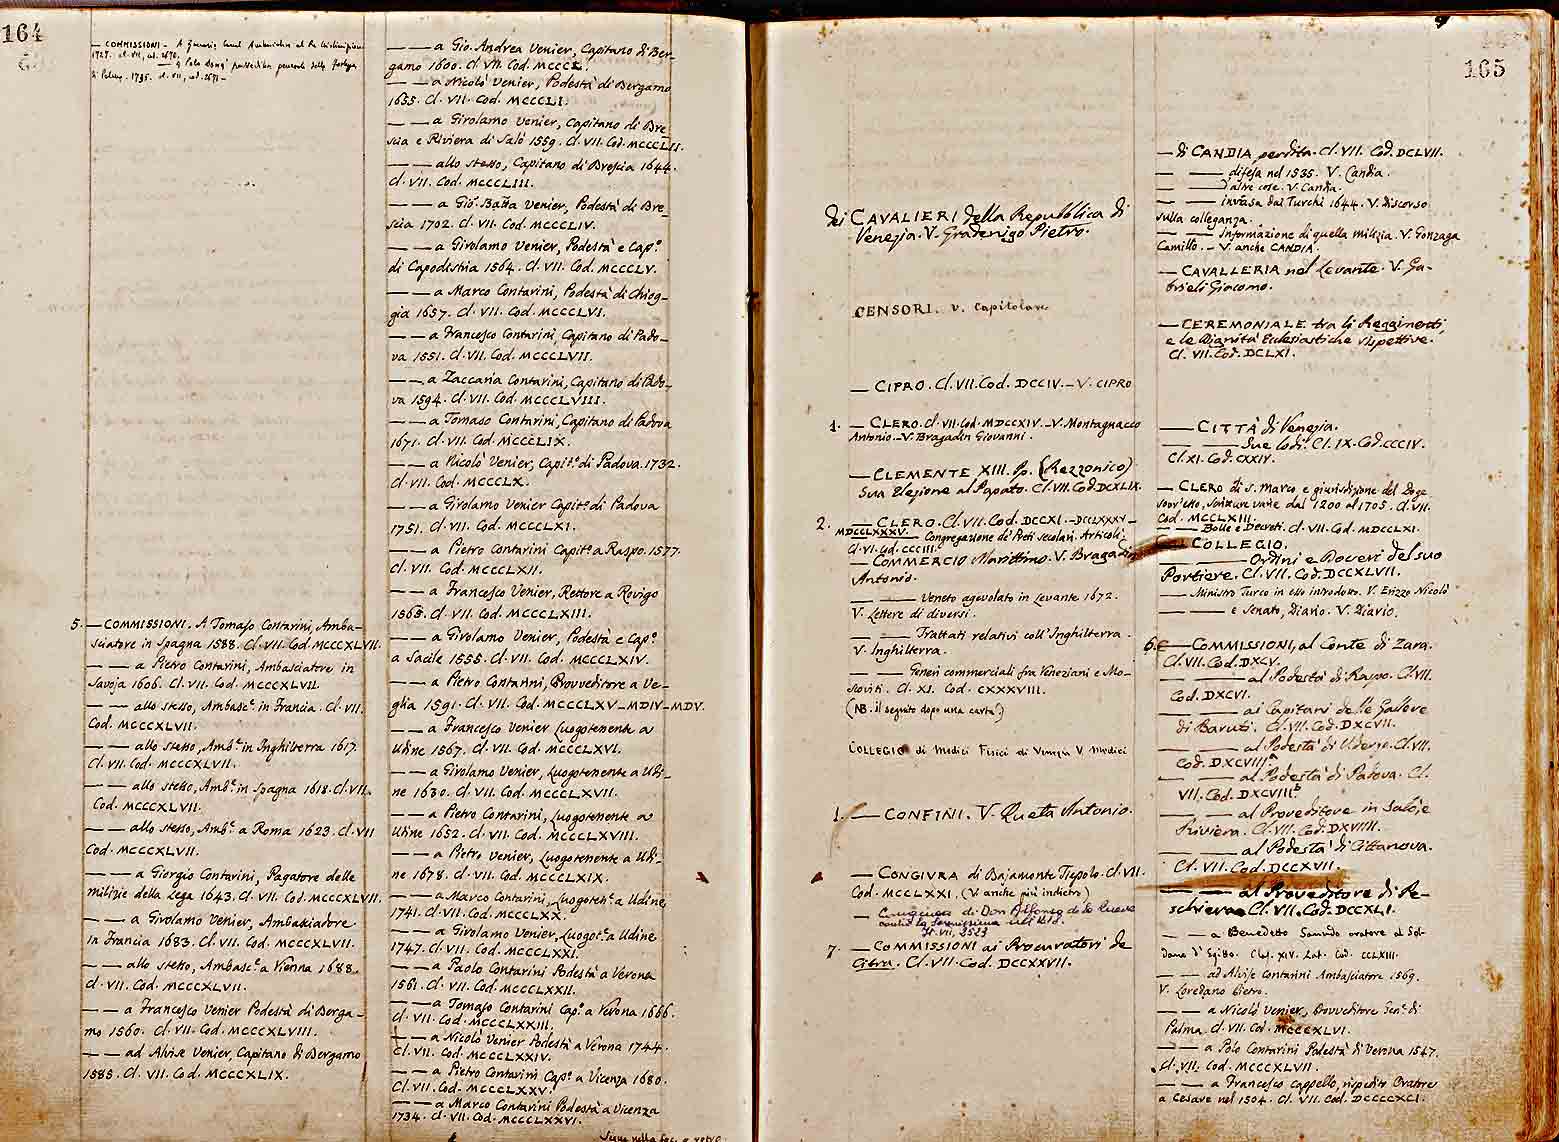 164
— COMMISSIONI — A
1727. cl. VII, cod. 1670.
di Palma. 1735. cl. VII, cod. 1671 —
5. — COMMISSIONI. A Tomaso Contarini, Amba-
sciatore in Spagna 1588. Cl. VII. Cod. MCCCXLVII.
— — a Pietro Contarini, Ambasciatore in
Savoja 1606. Cl. VII. Cod. MCCCXLVII
— — allo stesso, Ambasc.e in Francia. Cl. VII.
Cod. MCCCXLVII.
— — allo stesso, Amb.e in Inghilterra 1617.
Cl. VII. Cod. MCCCXLVII.
— — allo stesso, Amb.e in Spagna 1618. Cl. VII.
Cod. MCCCXLVII.
— — allo stesso, Amb.e a Roma 1623. Cl. VII
Cod. MCCCXLVII.
— — a Giorgio Contarini, Pagatore delle
milizie della Lega 1643. Cl. VII. Cod. MCCCXLVII.
— — a Girolamo Venier, Ambasciadore
in Francia 1683. Cl. VII. Cod. MCCCXLVII.
— — allo stesso, Ambasc.e a Vienna 1688.
Cl. VII. Cod. MCCCXLVII.
— — a Francesco Venier Podestà di Berga-
mo 1560. Cl. VII. Cod. MCCCXLVIII.
— — ad Alvise Venier, Capitano di Bergamo
1585. Cl. VII. Cod. MCCCXLIX.
— — a Gio. Andrea Venier, Capitano di Ber-
gamo 1600. Cl. VII. Cod. MCCCL.
— — a Nicolò Venier, Podestà di Bergamo
1655. Cl. VII. Cod. MCCCLI.
— — a Girolamo Venier, Capitano di Bre-
scia e Riviera di Salò 1559. Cl. VII. Cod. MCCCLII.
— — allo stesso, Capitano di Brescia 1644.
Cl. VII. Cod. MCCCLIII.
— — a Gio. Batta Venier, Podestà di Bre-
scia 1702. Cl. VII. Cod. MCCCLIV.
— — a Girolamo Venier, Podestà e Cap.o
di Capodistria 1564. Cl. VII. Cod. MCCCLV.
— — a Marco Contarini, Podestà di Chiog-
gia 1657. Cl. VII. Cod. MCCCLVI.
— — a Francesco Contarini, Capitano di Pado-
va 1551. Cl. VII. Cod. MCCCLVII.
— — a Zaccaria Contarini, Capitano di Pado-
va 1594. Cl. VII. Cod. MCCCLVIII.
— — a Tomaso Contarini, Capitano di Padova
1671. Cl. VII. Cod. MCCCLIX.
— — a Nicolò Venier, Capit.o di Padova. 1732.
Cl. VII. Cod. MCCCLX.
— — a Girolamo Venier Capit.o di Padova
1751. Cl. VII. Cod. MCCCLXI.
— — a Pietro Contarini Capit.o a Raspo. 1577.
Cl. VII. Cod. MCCCLXII.
— — a Francesco Venier, Rettore a Rovigo
1565. Cl. VII. Cod. MCCCLXIII.
— — a Girolamo Venier, Podestà e Cap.o
a Sacile 1555. Cl. VII. Cod. MCCCLXIV.
— — a Pietro Contarini, Provveditore a Ve-
glia 1591. Cl. VII. Cod. MCCCLXV — MDIV — MDV.
— — a Francesco Venier Luogotenente a
Udine 1567. Cl. VII. Cod. MCCCLXVI.
— — a Girolamo Venier, Luogotenente a Udi-
ne 1630. Cl. VII. Cod. MCCCLXVII.
— — a Pietro Contarini, Luogotenente a
Udine 1652. Cl. VII. Cod. MCCCLXVIII.
— — a Pietro Venier, Luogotenente a Udi-
ne 1678. Cl. VII. Cod. MCCCLXIX.
— — a Marco Contarini, Luogoten.e a Udine
1741. Cl. VII. Cod. MCCCLXX.
— — a Girolamo Venier, Luogot.e a Udine
1747. Cl. VII. Cod. MCCCLXXI.
— — a Paolo Contarini Podestà a Verona
1561. Cl. VII. Cod. MCCCLXXII.
— — a Tomaso Contarini Cap.o a Verona 1666.
Cl. VII. Cod. MCCCLXXIII.
— — a Nicolò Venier Podestà a Verona 1744.
Cl. VII. Cod. MCCCLXXIV.
— — a Pietro Contarini Cap.o a Vicenza 1680.
Cl. VII. Cod. MCCCLXXV.
— — a Marco Contarini Podestà a Vicenza
1734. Cl. VII. Cod. MCCCLXXVI.
Segue nella fac. a tergo
165
dei CAVALIERI della Repubblica di
Venezia. V. Gradenigo Pietro.
CENSORI. V. Capitolare
— CIPRO. Cl. VII. Cod. DCCIV. — V. CIPRO
1. — CLERO. Cl. VII. Cod. MDCCXIV. — V. Montagnacco
Antonio. — V. Bragadin Giovanni.
— CLEMENTE XIII. Pp. (Rezzonico)
Sua Elezione al Papato. Cl. VII. Cod. DCXLIX.
2. — CLERO. Cl. VII. Cod. DCCXI. — DCCLXXXV —
MDCCLXXXV. — Congregazione de' Preti secolari. Articoli.
Cl. VI. Cod. CCCIII.
— COMMERCIO Marittimo. V. Bragadin
Antonio.
— — Veneto agevolato in Levante 1672.
V. Lettere di diversi.
— — Trattati relativi coll'Inghilterra.
V. Inghilterra.
— — Generi commerciali fra Veneziani e Mo-
scoviti. Cl. XI. Cod. CXXXVIII.
(NB. il seguito dopo una carta)
COLLEGIO di Medici Fisici di Venezia V. Medici
1. — CONFINI. V. Queta Antonio.
— CONGIURA di Bajamonte Tiepolo. Cl. VII.
Cod. MCCLXXI. (V. anche più indietro)
— Congiura di Don Alfonso de la Queva
contro la
It. VII, 2523
7. — COMMISSIONI ai Procuratori de
Citra. Cl. VII. Cod. DCCXXVII.
— di CANDIA perdita. Cl. VII. Cod. DCLVII.
— — difesa nel 1535. V. Candia.
— — d'altre cose. V. Candia.
— — invasa dai Turchi 1644. V. discorso
sulla colleganza.
— — Informazione di quella milizia. V. Gonzaga
Camillo. — V. anche CANDIA.
— CAVALLERIA nel Levante. V. Ga-
brieli Giacomo.
— CEREMONIALE tra li Reggimenti,
e le Dignità Ecclesiastiche rispettive.
Cl. VII. Cod. DCLXI.
— CITTÀ di Venezia.
— — Sue lodi. Cl. IX. Cod. CCCIV.
Cl. XI. Cod. CXXIV.
— CLERO di S. Marco, e giurisdizione del Doge
sovr'esso, scritture varie dal 1200 al 1705. Cl. VII.
Cod. MCCLXIII.
— — Bolle e Decreti. Cl. VII. Cod. MDCLXI.
— COLLEGIO.
— — Ordini e Doveri del suo
Portiere. Cl. VII. Cod. DCCXLVII.
— — Ministro Turco in esso introdotto. V. Erizzo Nicolò
— — e Senato, Diario. V. Diario.
6. — COMMISSIONI, al Conte di Zara.
Cl. VII. Cod. DXCV.
— — al Podestà di Raspo. Cl. VII.
Cod. DXCVI.
— — ai Capitani delle Galere
di Baruti. Cl. VII. Cod. DXCVII.
— — al Podestà di Uderzo. Cl. VII.
Cod. DXCVIII.a
— — al Podestà di Padova. Cl.
VII. Cod. DXCVIII.b
— — al Proveditore in Salò, e
Riviera. Cl. VII. Cod. DXVIIII.
— — al Podestà di Cittanova.
Cl. VII. Cod. DCCXVII.
— — al Proveditore di Pe-
schiera Cl. VII. Cod. DCCXLI.
— — a Benedetto Sanudo oratore al Sol-
dano d'Egitto. Clas. XIV. Lat. Cod. CCLXIII.
— — ad Alvise Contarini Ambasciatore 1569.
V. Loredano Pietro.
— — a Nicolò Venier, Provveditore Gen.e di
Palma. Cl. VII. Cod. MCCCXLVI.
— — a Polo Contarini Podestà di Verona 1547.
Cl. VII. Cod. MCCCXLVII.
— — a Francesco Cappello, rispedito Oratore
a Cesare nel 1504. Cl. VII. Cod. DCCCCXCI.